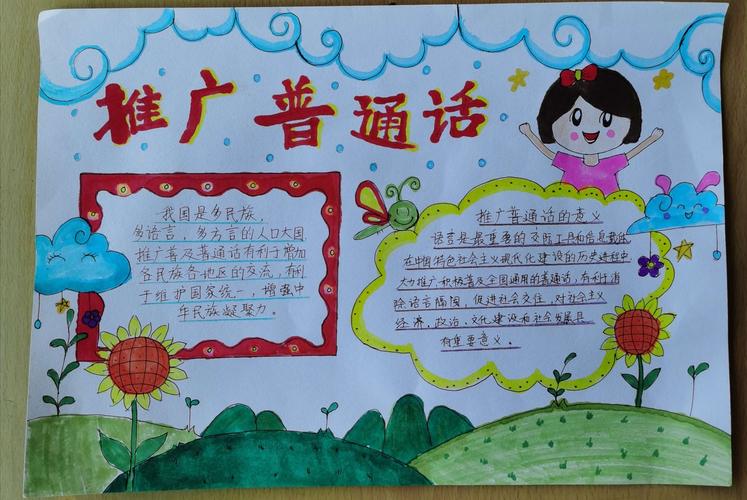 推广普通话
我国是多民族,
多语言,多方言的人口大国,
推广普及普通话有利于增加
各民族各地区的交流,有利
于维护国家统一,增强中
华民族凝聚力。
推广普通话的意义
语言是最重要的交际工具和信息载体
在中国特色社会主义现代化建设的历史进程中
大力推广积极普及全国通用的普通话,有利于消
除语言隔阂,促进社会交往,对社会主义
经济,政治,文化建设和社会发展具
有重要意义。